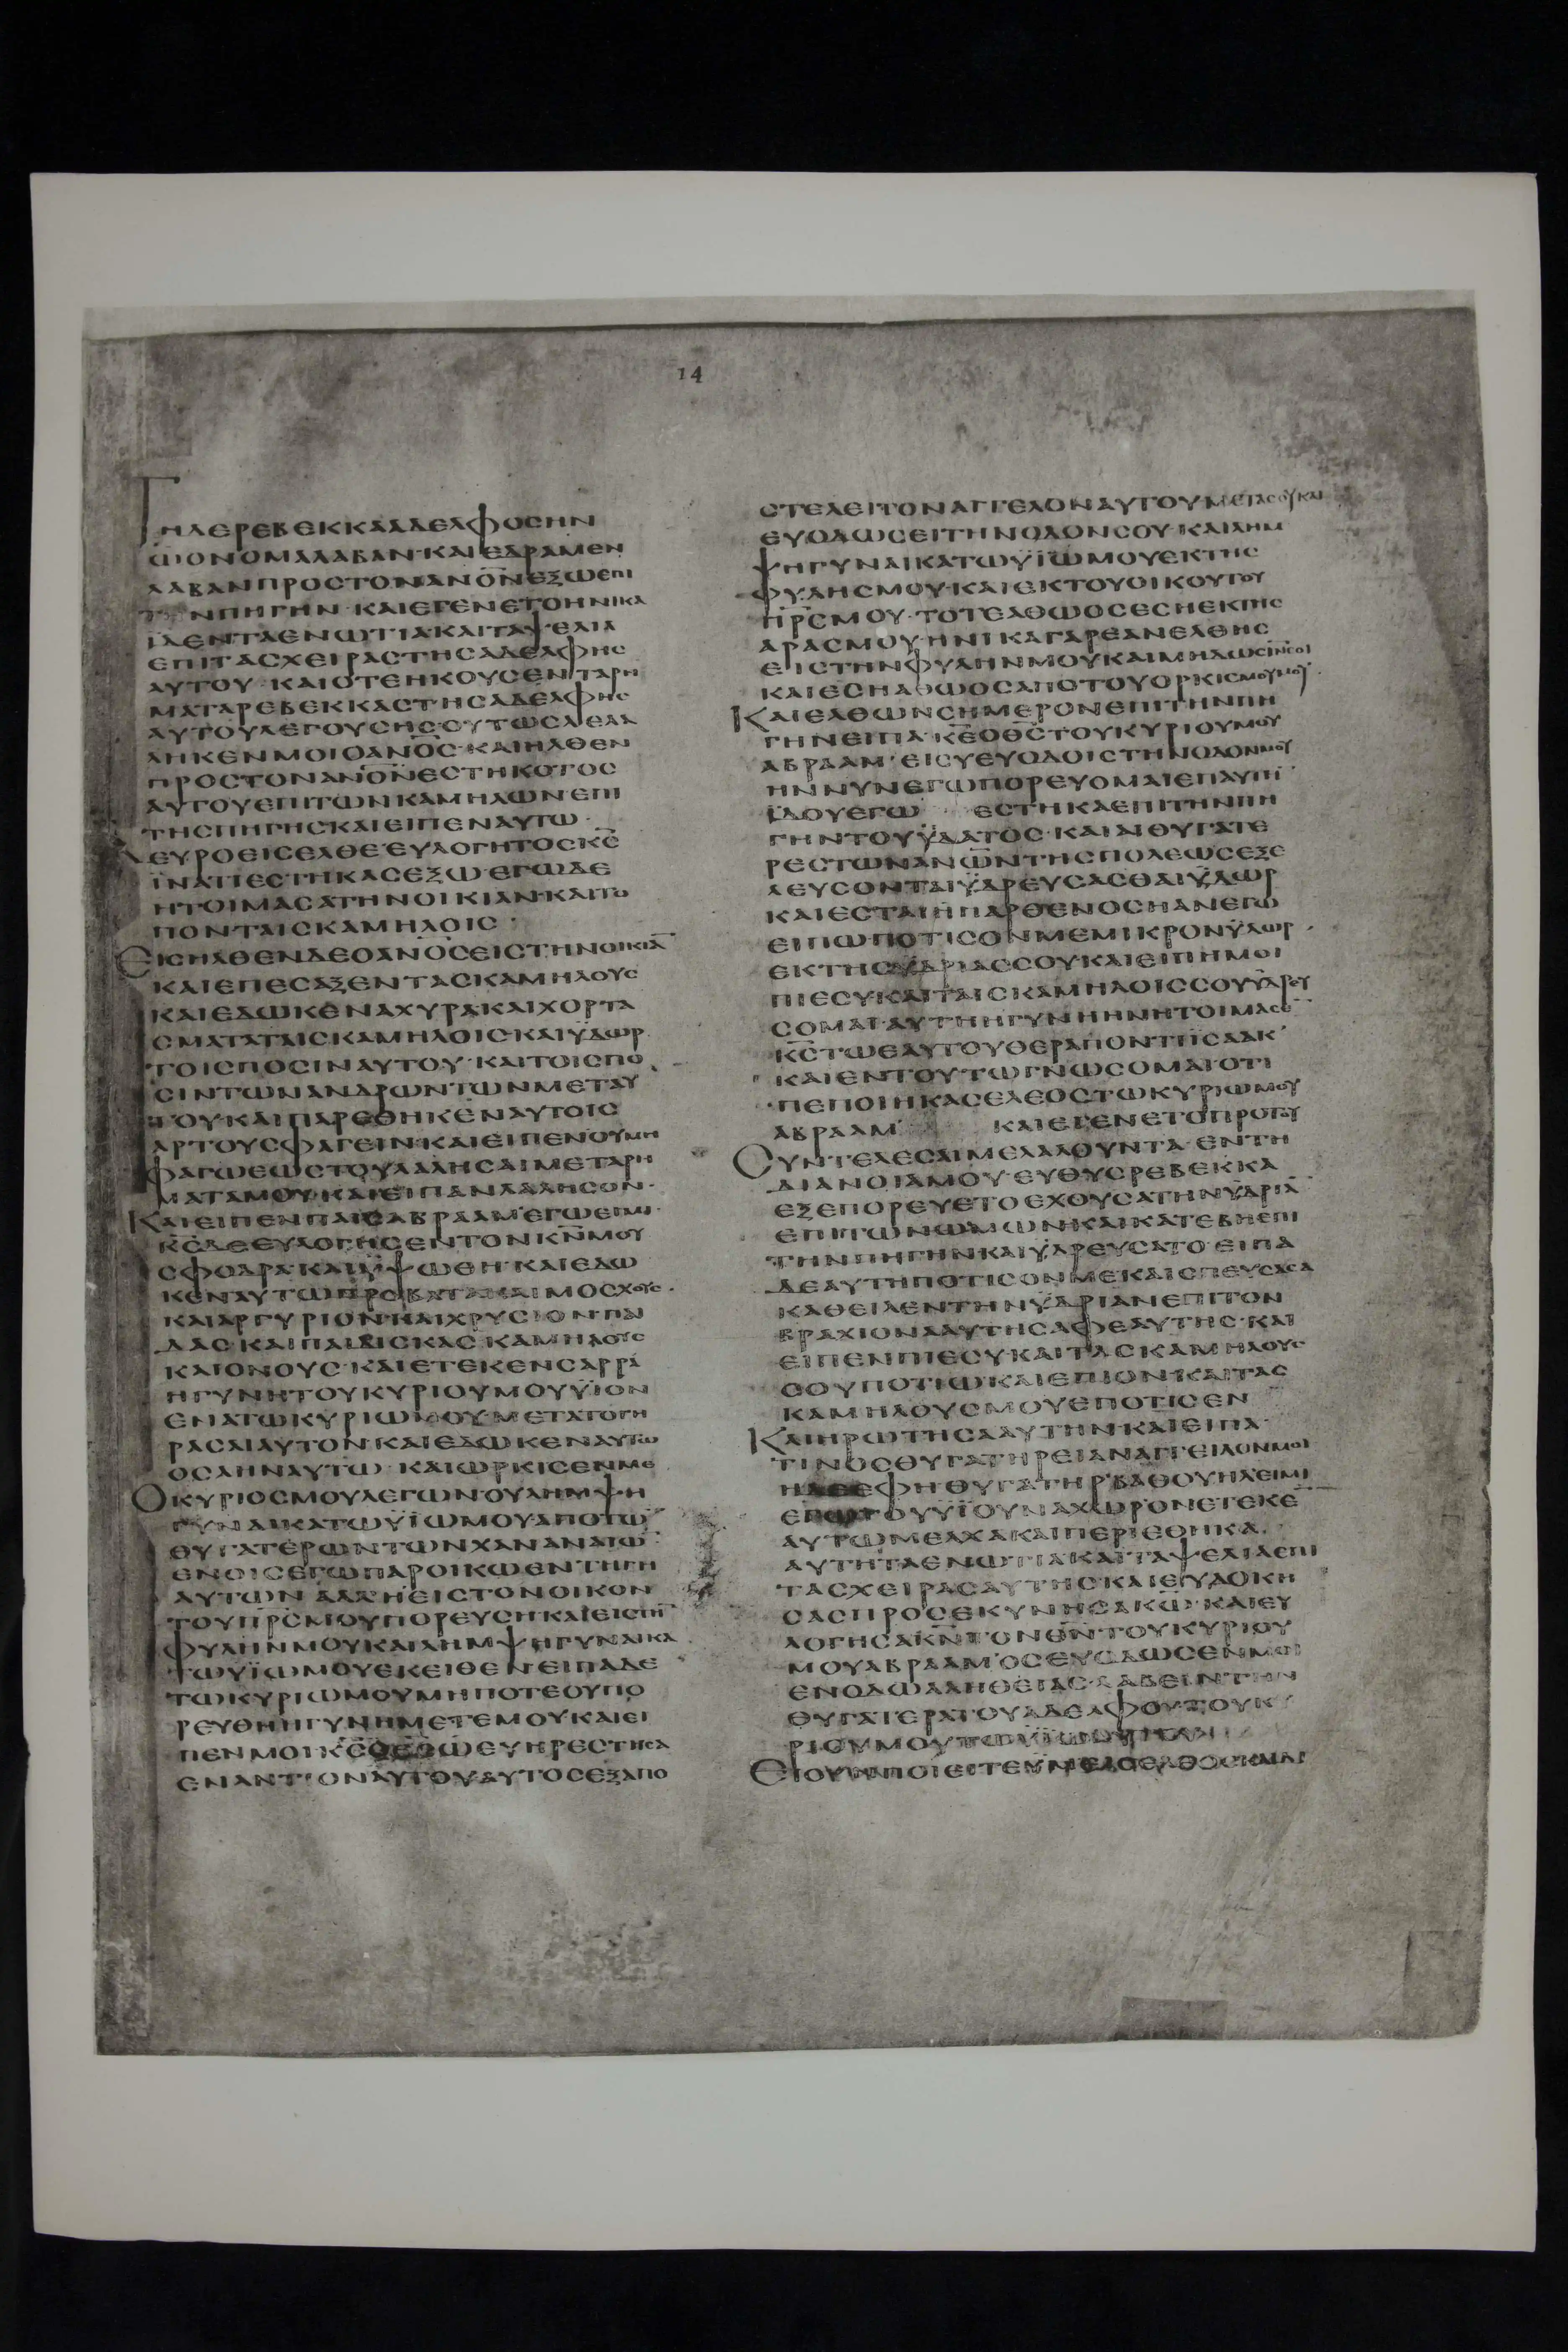 14
ΤΗΔΕΡΕΒΕΚΚΑΑΔΕΛΦΟCΗΝ
ΩΟΝΟΜΑΛΑΒΑΝ·ΚΑΙΕΔΡΑΜΕΝ
ΛΑΒΑΝΠΡΟCΤΟΝΑΝΟΝΕΞΩΕΠΙ
ΤΗΝΠΗΓΗΝ·ΚΑΙΕΓΕΝΕΤΟΗΝΙΚΑ
ΙΔΕΝΤΑΕΝΩΤΙΑ·ΚΑΙΤΑΨΕΛΙΑ
ΕΠΙΤΑCΧΕΙΡΑCΤΗCΑΔΕΛΦΗC
ΑΥΤΟΥ·ΚΑΙΟΤΕΗΚΟΥCΕΝΤΑΡΗ
ΜΑΤΑΡΕΒΕΚΚΑCΤΗCΑΔΕΛΦΗC
ΑΥΤΟΥΛΕΓΟΥCΗCΟΥΤΩCΛΕΛΑ
ΛΗΚΕΝΜΟΙΟΑΝΟC·ΚΑΙΗΛΘΕΝ
ΠΡΟCΤΟΝΑΝΟΝΕCΤΗΚΟΤΟC
ΑΥΤΟΥΕΠΙΤΩΝΚΑΜΗΛΩΝΕΠΙ
ΤΗCΠΗΓΗCΚΑΙΕΙΠΕΝΑΥΤΩ·
ΔΕΥΡΟΕΙCΕΛΘΕΕΥΛΟΓΗΤΟCΚC
ΪΝΑΤΙΕCΤΗΚΑCΕΞΩ·ΕΓΩΔΕ
ΗΤΟΙΜΑCΑΤΗΝΟΙΚΙΑΝ·ΚΑΙΤΟ
ΠΟΝΤΑΙCΚΑΜΗΛΟΙC·
ΕΙCΗΛΘΕΝΔΕΟΑΝΟCΕΙCΤΗΝΟΙΚΙΑ
ΚΑΙΕΠΕCΑΞΕΝΤΑCΚΑΜΗΛΟΥC
ΚΑΙΕΔΩΚΕΝΑΧΥΡΑΚΑΙΧΟΡΤΑ
CΜΑΤΑΤΑΙCΚΑΜΗΛΟΙCΚΑΙΫΔΩΡ
ΤΟΙCΠΟCΙΝΑΥΤΟΥ·ΚΑΙΤΟΙCΠΟ
CΙΝΤΩΝΑΝΔΡΩΝΤΩΝΜΕΤΑΥ
ΤΟΥΚΑΙΠΑΡΕΘΗΚΕΝΑΥΤΟΙC
ΑΡΤΟΥCΦΑΓΕΙΝ·ΚΑΙΕΙΠΕΝΟΥΜΗ
ΦΑΓΩΕΩCΤΟΥΛΑΛΗCΑΙΜΕΤΑΡΗ
ΜΑΤΑΜΟΥΚΑΙΕΙΠΑΝΛΑΛΗCΟΝ·
ΚΑΙΕΙΠΕΝΠΑΙCΑΒΡΑΑΜΕΓΩΕΙΜΙ·
ΚCΔΕΕΥΛΟΓΗCΕΝΤΟΝΚΝΜΟΥ
CΦΟΔΡΑ·ΚΑΙΫΨΩΘΗ·ΚΑΙΕΔΩ
ΚΕΝΑΥΤΩΠΡΟΒΑΤΑΚΑΙΜΟCΧΟΥC·
ΚΑΙΑΡΓΥΡΙΟΝΚΑΙΧΡΥCΙΟΝ·ΠΑΙ
ΔΑC·ΚΑΙΠΑΙΔΙCΚΑC·ΚΑΜΗΛΟΥC
ΚΑΙΟΝΟΥC·ΚΑΙΕΤΕΚΕΝCΑΡΡΑ
ΗΓΥΝΗΤΟΥΚΥΡΙΟΥΜΟΥΫΙΟΝ
ΕΝΑΤΩΚΥΡΙΩΜΟΥ·ΜΕΤΑΤΟΓΗ
ΡΑCΑΙΑΥΤΟΝ·ΚΑΙΕΔΩΚΕΝΑΥΤΩ
ΟCΑΗΝΑΥΤΩ·ΚΑΙΩΡΚΙCΕΝΜΕ
ΟΚΥΡΙΟCΜΟΥΛΕΓΩΝ·ΟΥΛΗΜΨΗ
ΓΥΝΑΙΚΑΤΩΫΙΩΜΟΥΑΠΟΤΩ
ΘΥΓΑΤΕΡΩΝΤΩΝΧΑΝΑΝΑΙΩ
ΕΝΟΙCΕΓΩΠΑΡΟΙΚΩΕΝΤΗΓΗ
ΑΥΤΩΝ·ΑΛΛΗΕΙCΤΟΝΟΙΚΟΝ
ΤΟΥΠΡCΜΟΥΠΟΡΕΥCΗ·ΚΑΙΕΙCΤΗ
ΦΥΛΗΝΜΟΥΚΑΙΛΗΜΨΗΓΥΝΑΙΚΑ
ΤΩΫΙΩΜΟΥΕΚΕΙΘΕΝ·ΕΙΠΑΔΕ
ΤΩΚΥΡΙΩΜΟΥΜΗΠΟΤΕΟΥΠΟ
ΡΕΥΘΗΗΓΥΝΗΜΕΤΕΜΟΥΚΑΙΕΙ
ΠΕΝΜΟΙΚCΟΘCΩΕΥΗΡΕCΤΗCΑ
ΕΝΑΝΤΙΟΝΑΥΤΟΥΑΥΤΟCΕΞΑΠΟ
CΤΕΛΕΙΤΟΝΑΓΓΕΛΟΝΑΥΤΟΥΜΕΤΑCΟΥΚΑΙ
ΕΥΟΔΩCΕΙΤΗΝΟΔΟΝCΟΥ·ΚΑΙΛΗΜ
ΨΗΓΥΝΑΙΚΑΤΩΫΙΩΜΟΥΕΚΤΗC
ΦΥΛΗCΜΟΥ·ΚΑΙΕΚΤΟΥΟΙΚΟΥΤΟΥ
ΠΡCΜΟΥ·ΤΟΤΕΑΘΩΟCΕCΗΕΚΤΗC
ΑΡΑCΜΟΥ·ΗΝΙΚΑΓΑΡΕΑΝΕΛΘΗC
ΕΙCΤΗΝΦΥΛΗΝΜΟΥΚΑΙΜΗΔΩCΙΝCΟΙ
ΚΑΙΕCΗΑΘΩΟCΑΠΟΤΟΥΟΡΚΙCΜΟΥΜΟΥ
ΚΑΙΕΛΘΩΝCΗΜΕΡΟΝΕΠΙΤΗΝΠΗ
ΓΗΝΕΙΠΑ·ΚΕΟΘCΤΟΥΚΥΡΙΟΥΜΟΥ
ΑΒΡΑΑΜ·ΕΙCΥΕΥΟΔΟΙCΤΗΝΟΔΟΝΜΟΥ
ΗΝΝΥΝΕΓΩΠΟΡΕΥΟΜΑΙΕΠΑΥΤΗ
ΪΔΟΥΕΓΩ ΕCΤΗΚΑΕΠΙΤΗΝΠΗ
ΓΗΝΤΟΥΫΔΑΤΟC·ΚΑΙΑΙΘΥΓΑΤΕ
ΡΕCΤΩΝΑΝΩΝΤΗCΠΟΛΕΩCΕΞΕ
ΛΕΥCΟΝΤΑΙΫΔΡΕΥCΑCΘΑΙΫΔΩΡ
ΚΑΙΕCΤΑΙΗΠΑΡΘΕΝΟCΗΑΝΕΓΩ
ΕΙΠΩΠΟΤΙCΟΝΜΕΜΙΚΡΟΝΫΔΩΡ·
ΕΚΤΗCΫΔΡΙΑCCΟΥΚΑΙΕΙΠΗΜΟΙ
ΠΙΕCΥΚΑΙΤΑΙCΚΑΜΗΛΟΙCCΟΥΫΔΡΕΥ
CΟΜΑΙ·ΑΥΤΗΗΓΥΝΗΗΝΗΤΟΙΜΑCΕ
ΚCΤΩΕΑΥΤΟΥΘΕΡΑΠΟΝΤΙΪCΑΑΚ
ΚΑΙΕΝΤΟΥΤΩΓΝΩCΟΜΑΙΟΤΙ
ΠΕΠΟΙΗΚΑCΕΛΕΟCΤΩΚΥΡΙΩΜΟΥ
ΑΒΡΑΑΜ ΚΑΙΕΓΕΝΕΤΟΠΡΟΤΟΥ
CΥΝΤΕΛΕCΑΙΜΕΛΑΛΟΥΝΤΑ·ΕΝΤΗ
ΔΙΑΝΟΙΑΜΟΥ·ΕΥΘΥCΡΕΒΕΚΚΑ
ΕΞΕΠΟΡΕΥΕΤΟΕΧΟΥCΑΤΗΝΫΔΡΙΑ
ΕΠΙΤΩΝΩΜΩΝ·ΚΑΙΚΑΤΕΒΗΕΠΙ
ΤΗΝΠΗΓΗΝΚΑΙΫΔΡΕΥCΑΤΟ·ΕΙΠΑ
ΔΕΑΥΤΗΠΟΤΙCΟΝΜΕΚΑΙCΠΕΥCΑCΑ
ΚΑΘΕΙΛΕΝΤΗΝΫΔΡΙΑΝΕΠΙΤΟΝ
ΒΡΑΧΙΟΝΑΑΥΤΗCΑΦΕΑΥΤΗC·ΚΑΙ
ΕΙΠΕΝΠΙΕCΥΚΑΙΤΑCΚΑΜΗΛΟΥC
CΟΥΠΟΤΙΩ·ΚΑΙΕΠΙΟΝ·ΚΑΙΤΑC
ΚΑΜΗΛΟΥCΜΟΥΕΠΟΤΙCΕΝ
ΚΑΙΗΡΩΤΗCΑΑΥΤΗΝΚΑΙΕΙΠΑ·
ΤΙΝΟCΘΥΓΑΤΗΡΕΙΑΝΑΓΓΕΙΛΟΝΜΟΙ
ΗΔΕΕΦΗΘΥΓΑΤΗΡΒΑΘΟΥΗΛΕΙΜΙ
ΤΟΥΫΙΟΥΝΑΧΩΡΟΝΕΤΕΚΕ
ΑΥΤΩΜΕΛΧΑΚΑΙΠΕΡΙΕΘΗΚΑ
ΑΥΤΗΤΑΕΝΩΤΙΑΚΑΙΤΑΨΕΛΙΑΕΠΙ
ΤΑCΧΕΙΡΑCΑΥΤΗC·ΚΑΙΕΥΔΟΚΗ
CΑCΠΡΟCΕΚΥΝΗCΑΚΩ·ΚΑΙΕΥ
ΛΟΓΗCΑΚΝΤΟΝΘΝΤΟΥΚΥΡΙΟΥ
ΜΟΥΑΒΡΑΑΜ·ΟCΕΥΟΔΩCΕΝΜΟΙ
ΕΝΟΔΩΑΛΗΘΕΙΑC·ΛΑΒΕΙΝΤΗΝ
ΘΥΓΑΤΕΡΑΤΟΥΑΔΕΛΦΟΥΤΟΥΚΥ
ΡΙΟΥΜΟΥΤΩΫΙΩ
ΕΙΟΥΝΠΟΙΕΙΤΕΫΜΕΙC